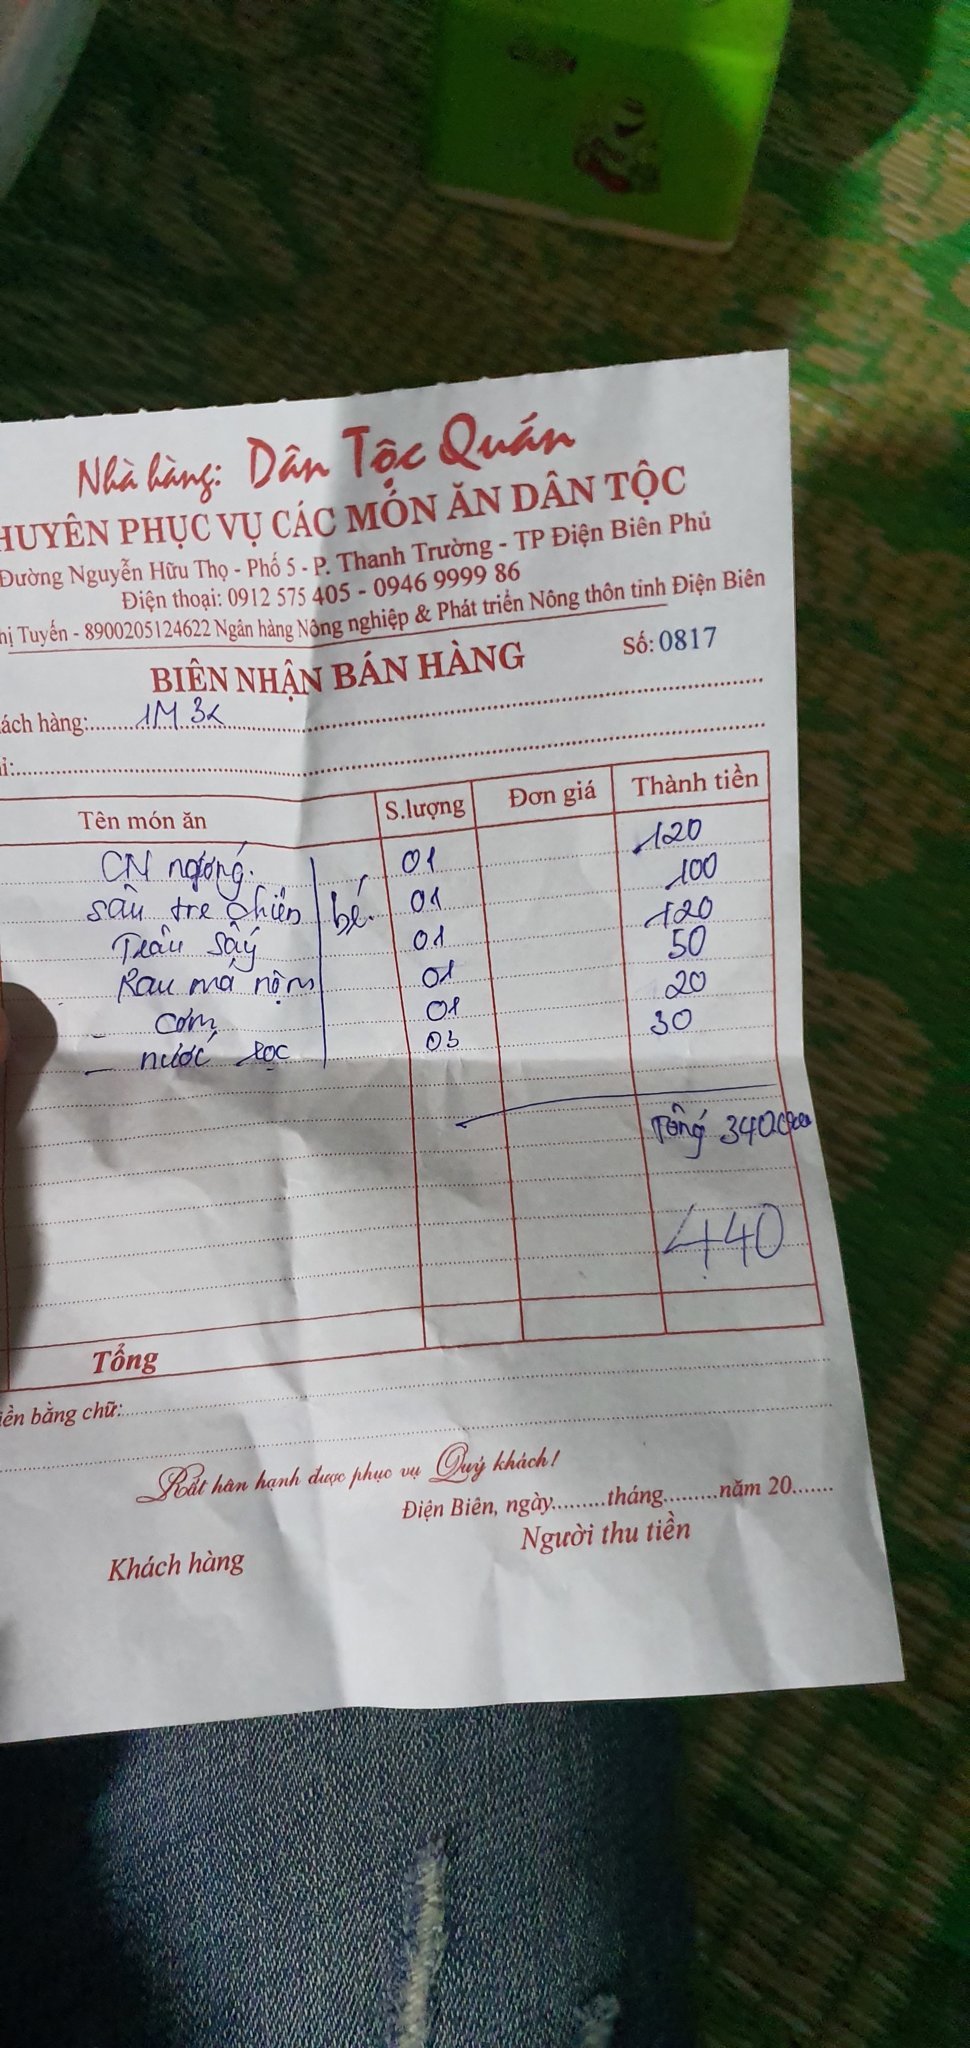 Nhà hàng: Dân Tộc Quán
HUYÊN PHỤC VỤ CÁC MÓN ĂN DÂN TỘC
Đường Nguyễn Hữu Thọ - Phố 5 - P. Thanh Trường - TP Điện Biên Phủ
Điện thoại: 0912 575 405 - 0946 9999 86
hị Tuyến - 8900205124622 Ngân hàng Nông nghiệp & Phát triển Nông thôn tỉnh Điện Biên
BIÊN NHẬN BÁN HÀNG Số: 0817
ách hàng: 1M 3K
ỉ:
Tên món ăn S.lượng Đơn giá Thành tiền
CN nướng. 01 120
Sâu tre chiên bé. 01 100
Trâu sấy 01 120
Rau má nộm 01 50
- Cơm 01 20
- nước lọc 03 30
Tổng 340.000
440
Tổng
iền bằng chữ:
Rất hân hạnh được phục vụ Quý khách!
Điện Biên, ngày.........tháng.........năm 20.......
Khách hàng Người thu tiền